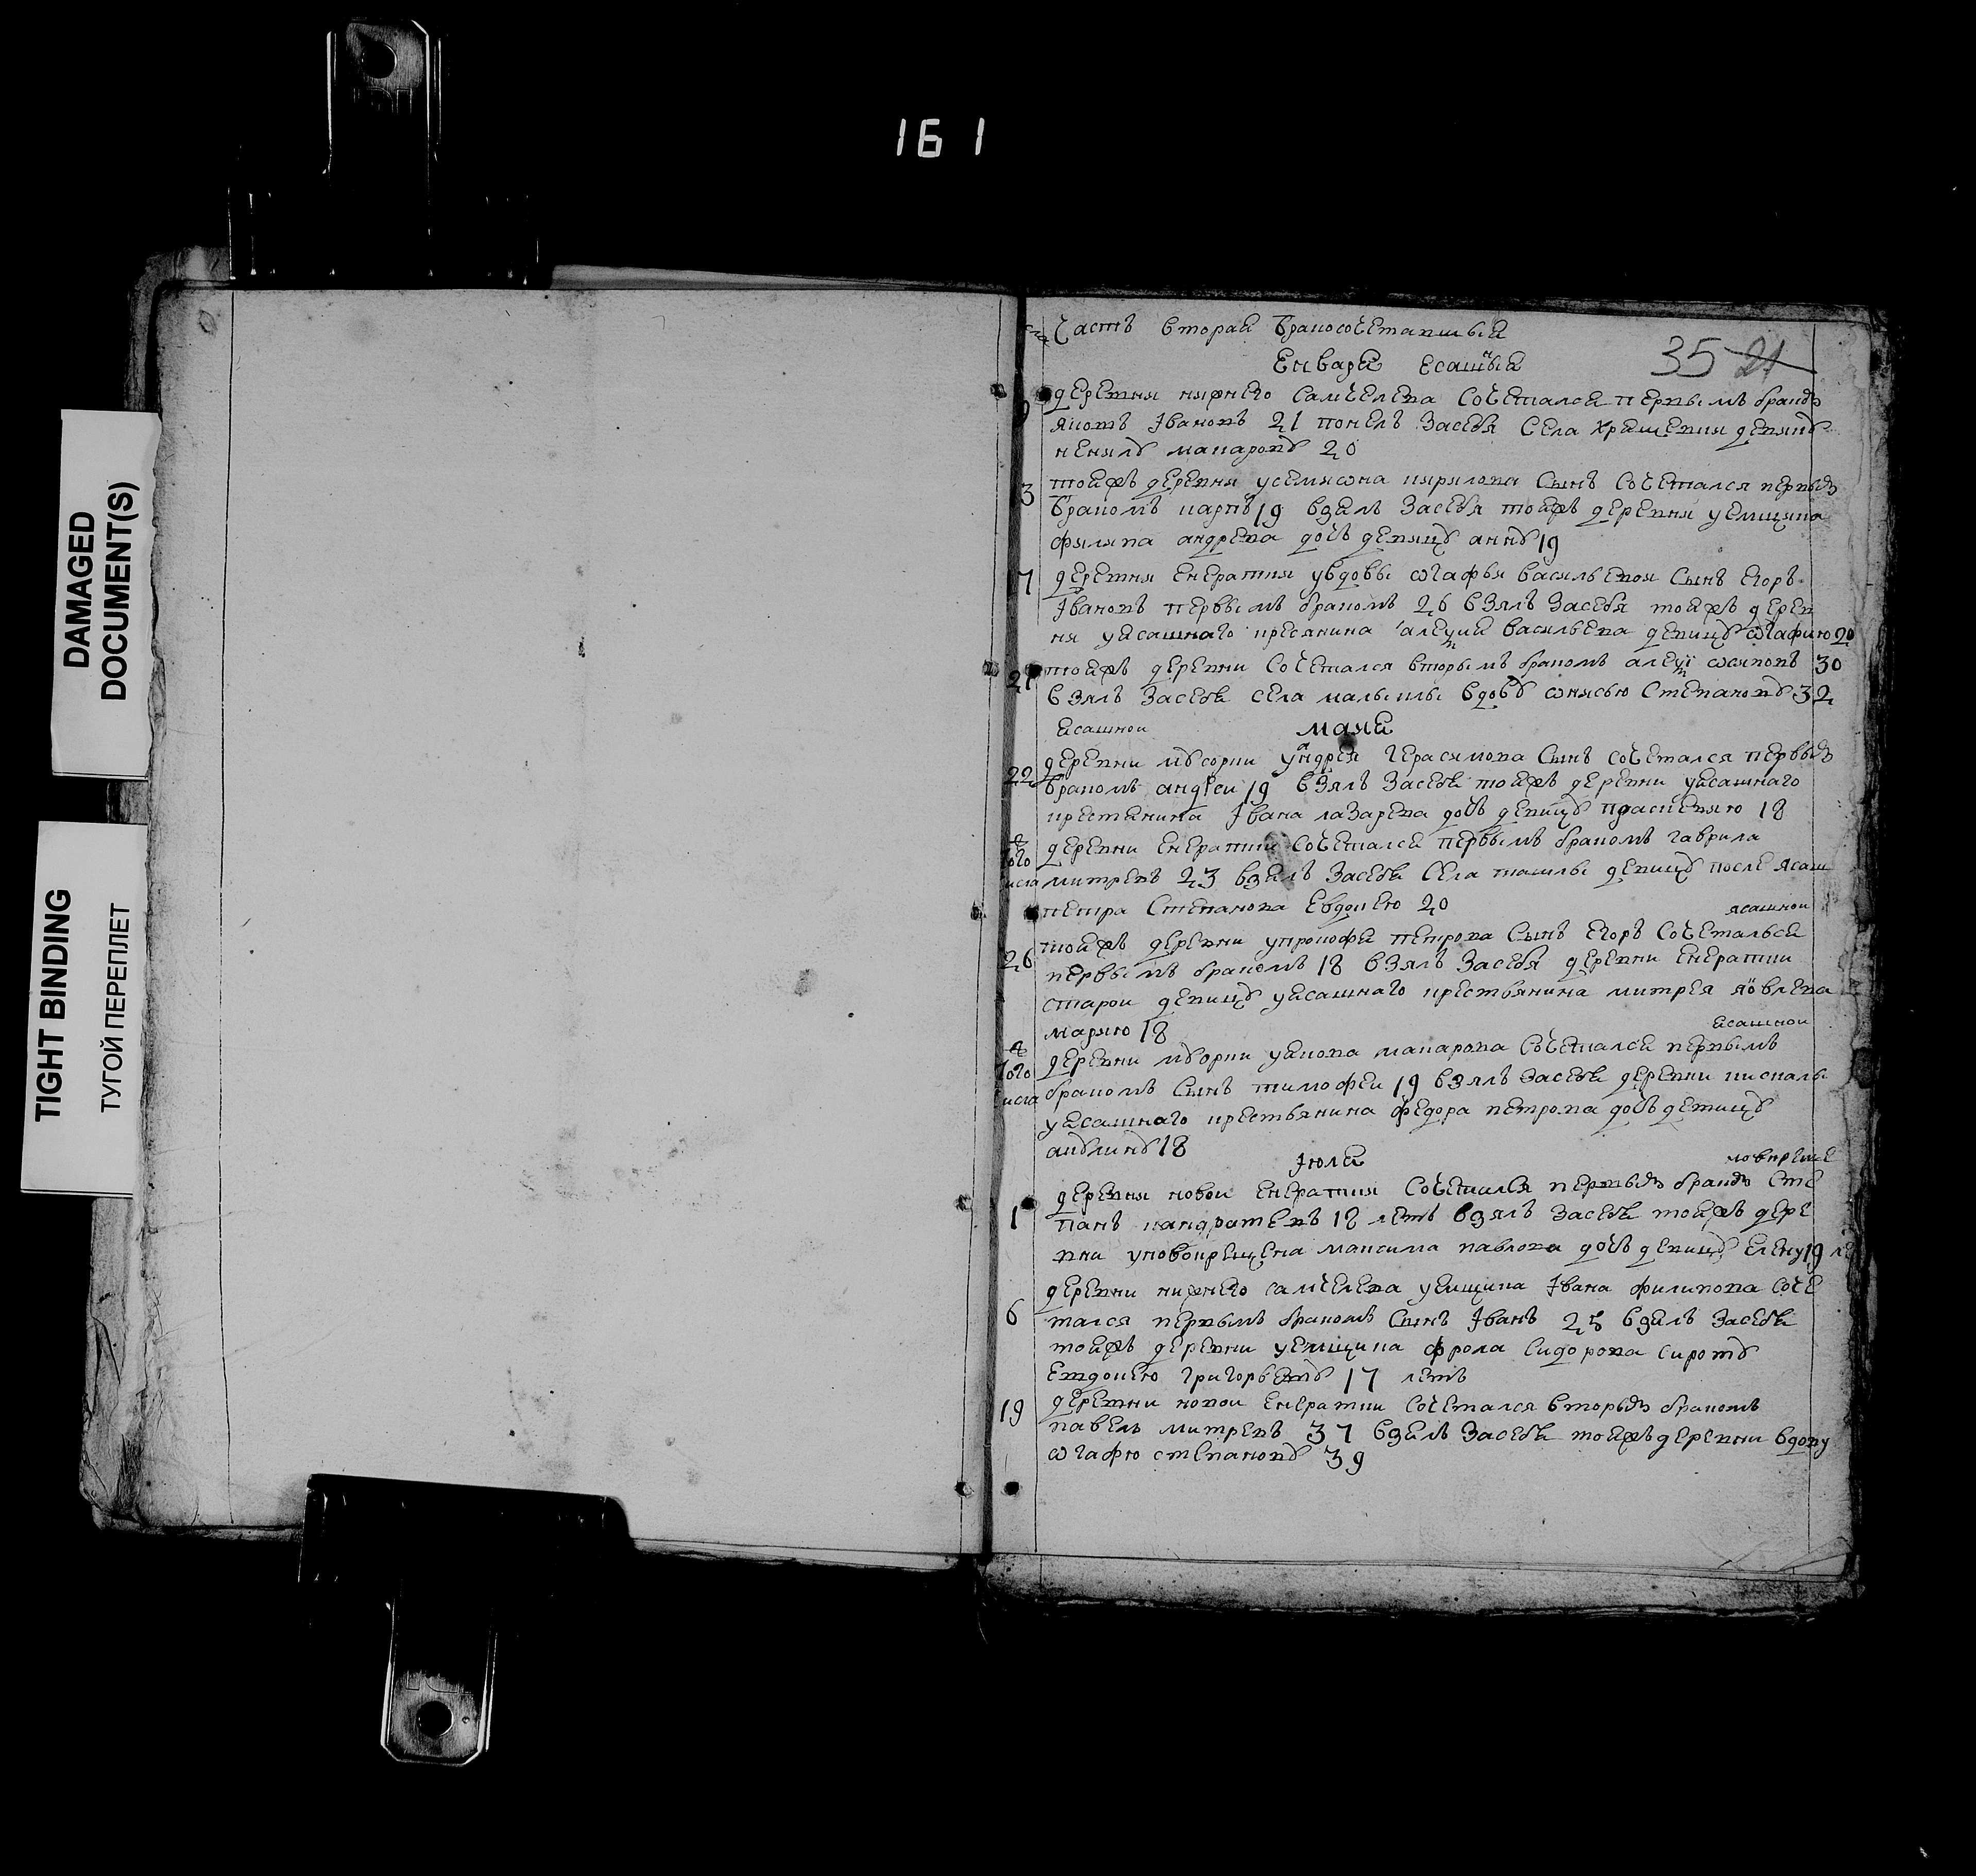 161
DAMAGED
DOCUMENT(S)
TIGHT BINDING
ТУГОЙ ПЕРЕПЛЕТ
Часть вторая бракосочетавшыя
35 21
Енваря есашныя
деревня нижнего Самчелева Сочетался первымъ бракъ
Якопъ Iвановъ 21 понелъ Засебя Села девицу
макарову 20
3 тоежъ деревня кирилова Сынъ Сочетался первыъ
бракомъ карпъ 19 взелъ Засебя тоежъ деревня уемщика
филипа андрева дочь девицу анну 19
17 деревня Енератки увдовы огафьи василъевои Сынъ Егоръ
Iвановъ первымъ бракомъ 26 взялъ Засебя тоежъ дерев
ня уясашнаго кресянина алеѯия василъева девицу огафию 20
21 тоежъ деревни Сочетался вторымъ бракомъ алеѯи осиповъ 30
взялъ Засебя села малыклы вдову онисью Степанову 32
есашнои маия
22 деревни уандрея Герасимова Сынъ сочетался первыъ
бракомъ андреи 19 взялъ Засебя тоежъ деревни уясашнаго
крестенина Iвана лазарева дочь девицу праскевию 18
того деревни Енераткии Сочетался первымъ бракомъ гаврила
числа митревъ 23 взелъ Засебя Села ташлы девицу после Ясаш
петра Степанова Евдокею 20 ясашнои
26 тоежъ деревни упрокофя петрова Сынъ Егоръ Сочеталъся
первымъ бракомъ 18 взялъ Засебя деревни Енератки
старои девицу уясашнаго крестьянина митрея яковлева
марию 18 есашнои
того деревни уякова макарова Сочетался первымъ
числа бракомъ Сынъ тимофеи 19 взялъ Засебя деревни
уясашнаго крестьянина федора петрова дочь девицу
акулину 18
Iюля новкреще
деревня новои Енератки Сочетался первыъ бракъ Сте
1 панъ кандратевъ 18 летъ взялъ Засебя тоежъ дере
вни уновокрещена максима павлова дочь девицу Елену 19 ле
деревни нижнего самчелева уемщика Iвана филипова Соче
6 тался первымъ бракомъ Сынъ Iванъ 25 взелъ Засебя
тоежъ деревни уемщика фрола Сидорова сироту
Евдокею григорьеву 17 летъ
19 деревни новои Енератки Сочетался вторыъ бракомъ
павелъ митревъ 37 взелъ Засебя тоежъ деревни вдову
огафю степанову 39